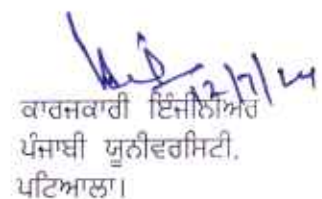 12/7/24
ਕਾਰਜਕਾਰੀ ਇੰਜੀਨੀਅਰ
ਪੰਜਾਬੀ ਯੂਨੀਵਰਸਿਟੀ,
ਪਟਿਆਲਾ।